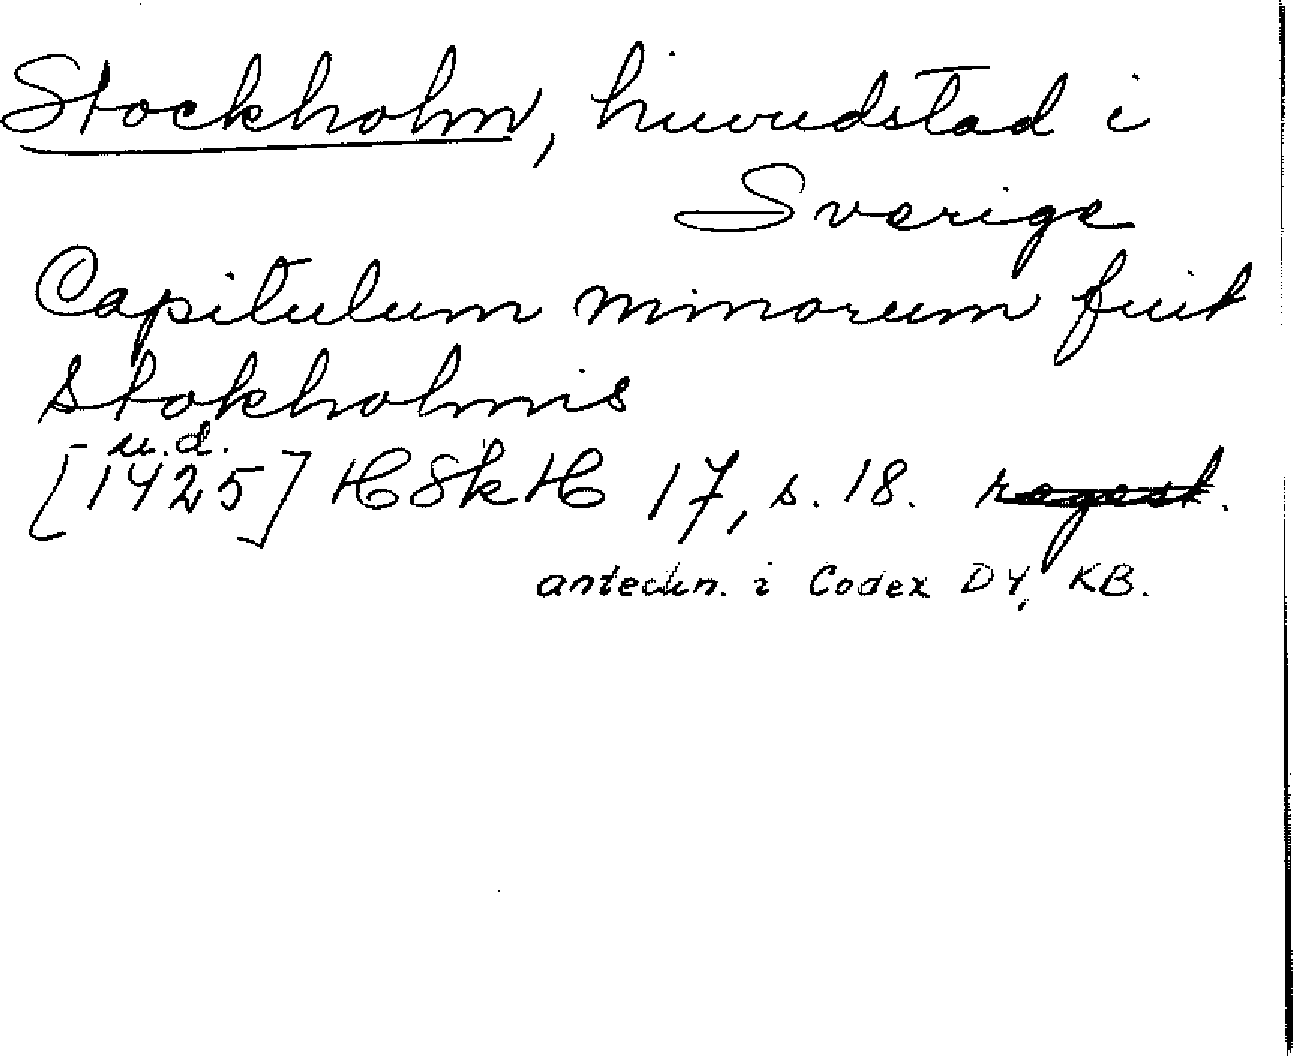 Stockholm, huvudstad i
Sverige
Capitulum minorum fuit
stokholmis
u.d.
[1425] HSkH 17, s. 18. regest.
anteckn. i Codex D4, KB.